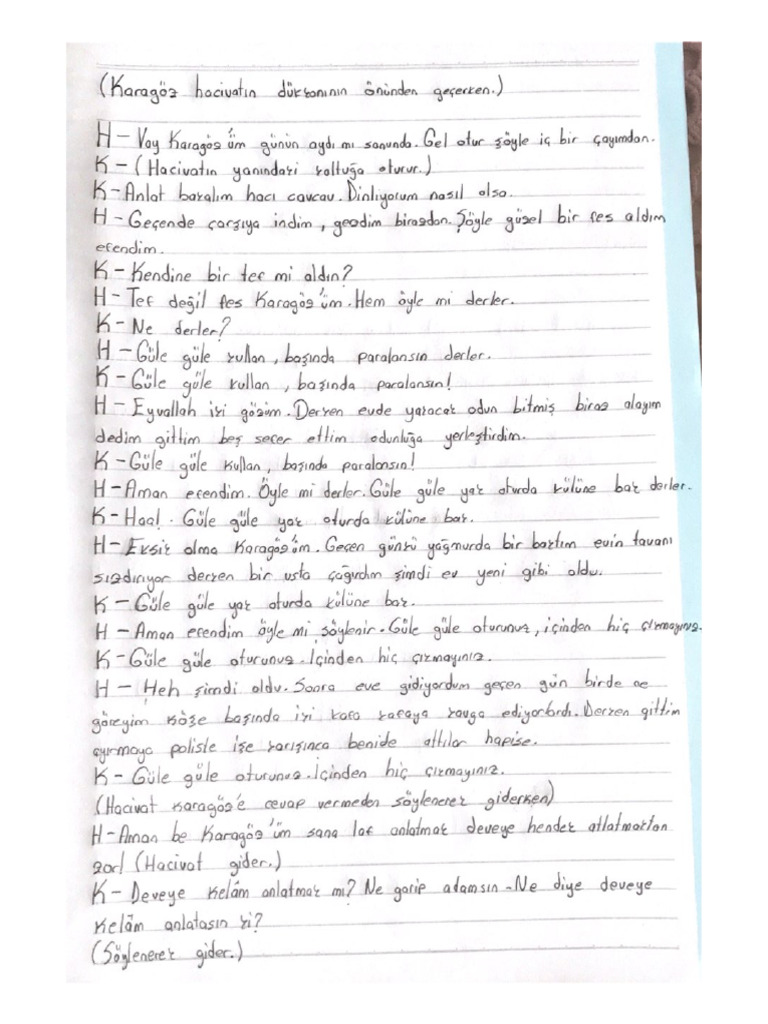 (Karagöz hacivatın dükkanının önünden geçerken.)
H-Vay Karagöz'üm günün aydı mı sonunda. Gel otur şöyle iç bir çayımdan.
K-(Hacivatın yanındaki koltuğa oturur.)
K-Anlat bakalım hacı cavcav. Dinliyorum nasıl olsa.
H-Geçende çarşıya indim, gezdim birazdan. Şöyle güzel bir fes aldım
efendim.
K-Kendine bir tef mi aldın?
H-Tef değil fes Karagöz'üm. Hem öyle mi derler.
K-Ne derler?
H-Güle güle kullan, başında paralansın derler.
K-Güle güle kullan, başında paralansın!
H-Eyvallah iki gözüm. Derken evde yakacak odun bitmiş biraz alayım
dedim gittim beş seker ettim odunluğa yerleştirdim.
K-Güle güle kullan, başında paralansın!
H-Aman efendim. Öyle mi derler. Güle güle yak oturda külüne bak derler.
K-Haa!. Güle güle yak oturda külüne bak.
H-Eksik olma Karagöz'üm. Geçen günkü yağmurda bir baktım evin tavanı
sızdırıyor derken bir usta çağırdım şimdi ev yeni gibi oldu.
K-Güle güle yak oturda külüne bak.
H-Aman efendim öyle mi söylenir. Güle güle oturunuz, içinden hiç çıkmayınız.
K-Güle güle oturunuz. İçinden hiç çıkmayınız.
H-Heh şimdi oldu. Sonra eve gidiyordum geçen gün birde ne
göreyim köşe başında iki kafa kafaya kavga ediyorlardı. Derken gittim
ayırmaya polisle işe karışınca benide attılar hapise.
K-Güle güle oturunuz. İçinden hiç çıkmayınız.
(Hacivat Karagöz'e cevap vermeden söylenerek giderken)
H-Aman be Karagöz'üm sana laf anlatmak deveye hendek atlatmaktan
zor! (Hacivat gider.)
K-Deveye kelâm anlatmak mı? Ne garip adamsın. Ne diye deveye
kelâm anlatasın ki?
(Söylenerek gider.)